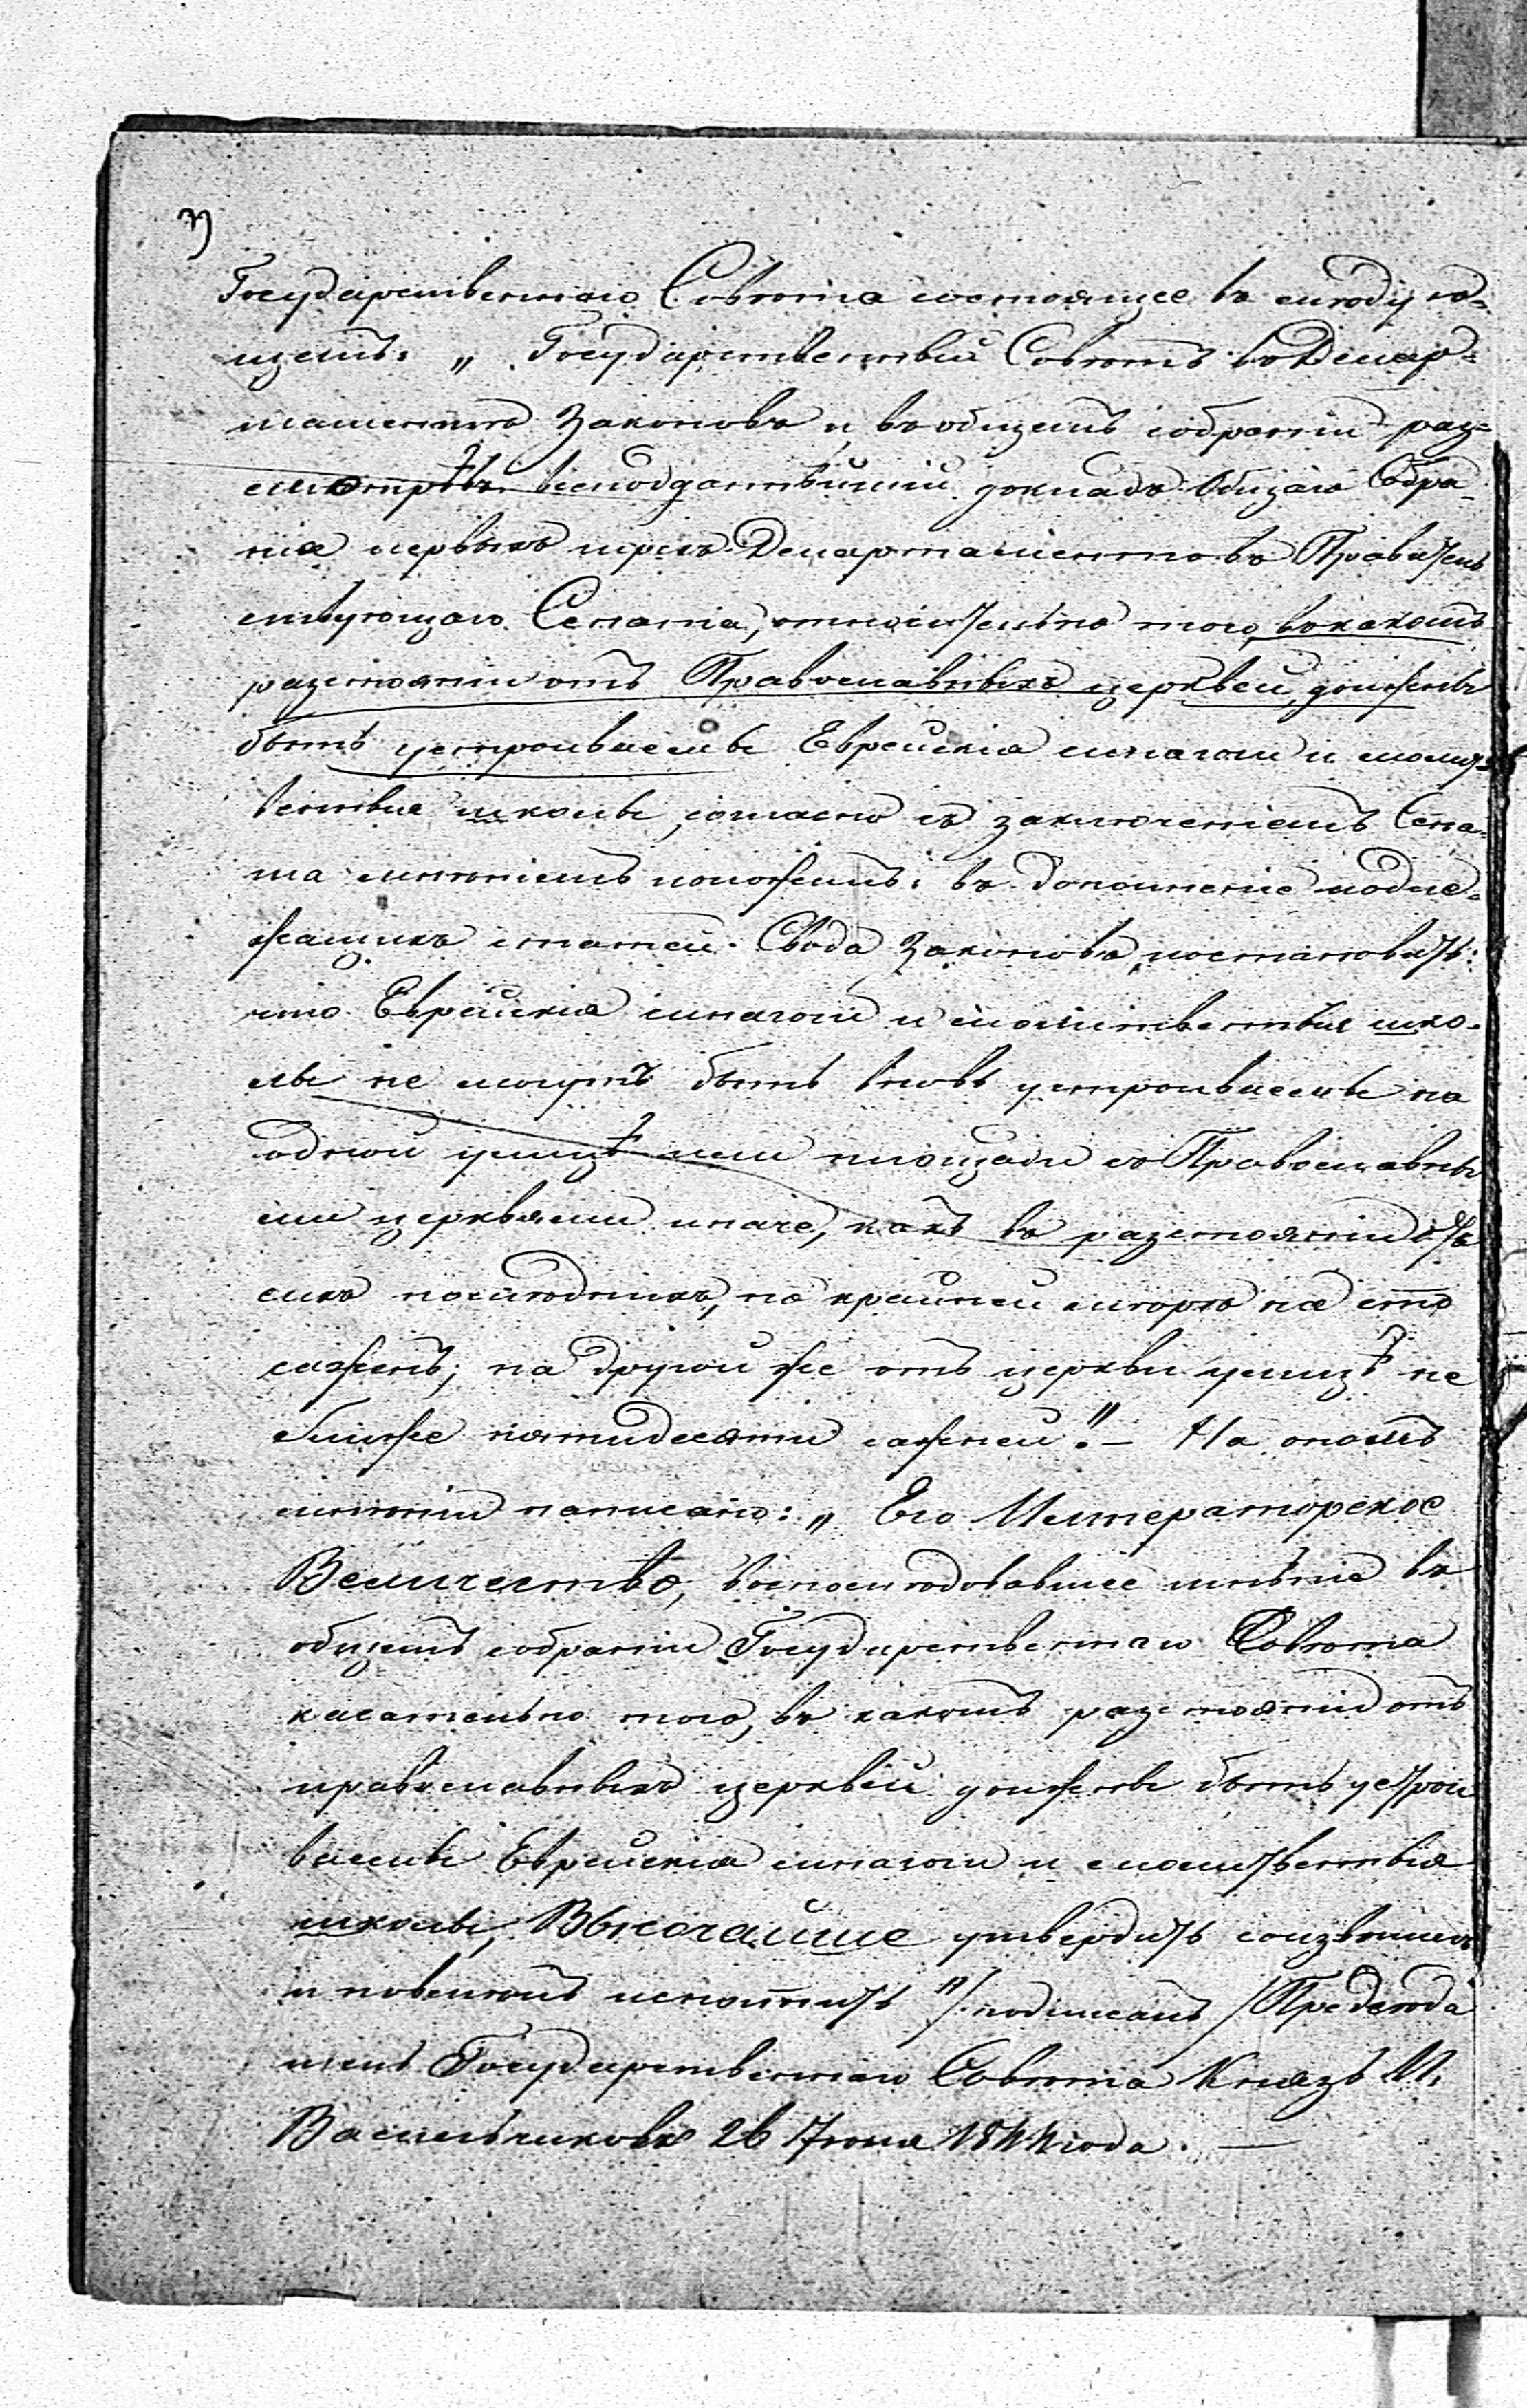 Государственнаго Совѣта состоящее въ слѣдую=
щемъ: „Государственный Совѣтъ въ Депар=
таментѣ Законовъ и въ общемъ собраніи раз=
смотрѣвъ всеподданнѣйшій докладъ Общаго Собра=
нія первыхъ трехъ Департаментовъ Правитель
ствующаго Сената, относительно того, въ какомъ
разстояніи отъ Православныхъ церквей, должны
быть устроиваемы Еврейскія синагоги и молит=
венныя школы, согласно съ заключеніемъ Сена=
та мнѣніемъ положилъ: въ дополненіе подле=
жащихъ статей Свода Законовъ, постановить:
что Еврейскія синагоги и молитвенныя шко=
лы не могутъ быть вновь устроиваемы на
одной улицѣ или площади съ Православны
ми церквями иначе, какъ въ разстояніи отъ
сихъ послѣднихъ, по крайней мѣрѣ на сто
сажень; на другой же отъ церкви улицѣ не
ближе пятидесяти сажней". — На ономъ
мнѣніи написано: „Его Императорское
Величество, воспослѣдовавшее мнѣніе въ
общемъ собраніи Государственнаго Совѣта
касательно того, въ какомъ разстояніи отъ
православныхъ церквей должны быть устрои
ваемы Еврейскія синагоги и молитвенныя
школы, Высочайше утвердить соизволилъ
и повелѣлъ исполнить" /подписалъ/ Предсѣда
тель Государственнаго Совѣта Князь И.
Васильчиковъ 26 Іюня 1844 года. —